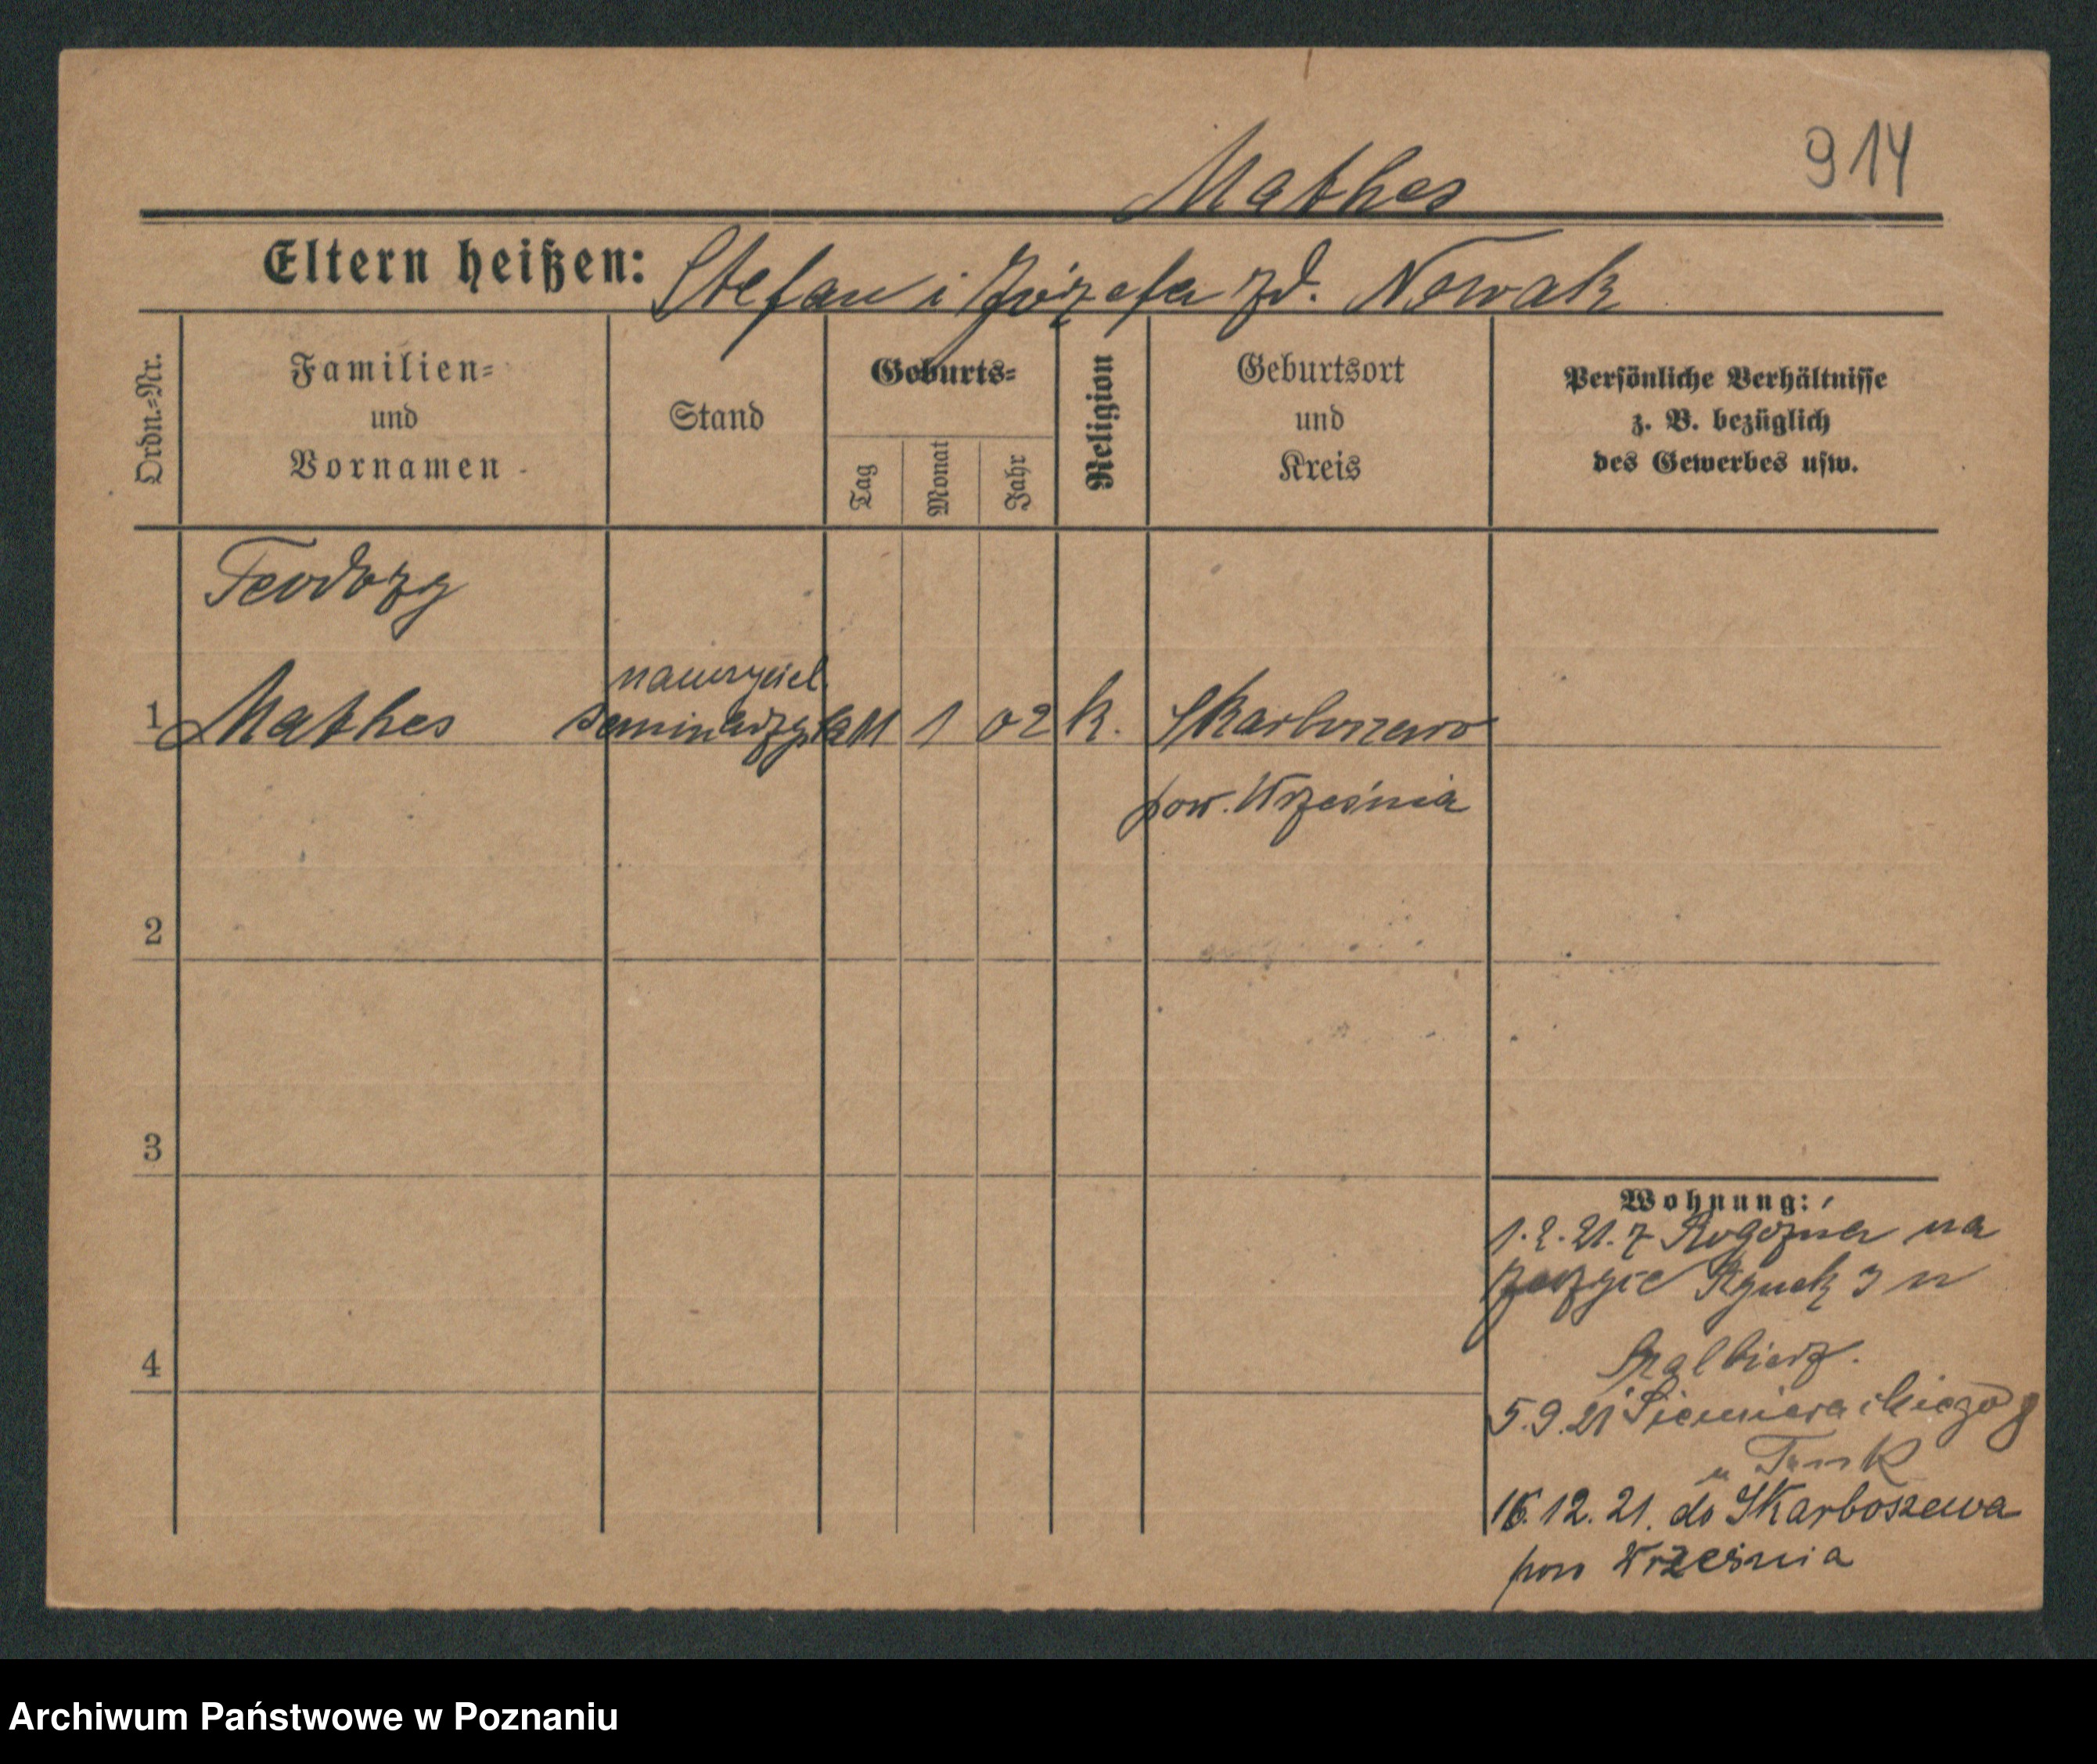 914
Mathes
Eltern heißen: Stefan i Józefa zd. Nowak
Ordn.=Nr.
Familien=
und
Vornamen
Stand
Geburts=
Tag
Monat
Jahr
Religion
Geburtsort
und
Kreis
Persönliche Verhältnisse
z. B. bezüglich
des Gewerbes usw.
Teodozy
nauczyciel.
1 Mathes 11 1 02 k. Skarboszewo
pow. Września
2
3
4
Wohnung:
1.2.21. z Rogozna na
Rynek 3 u
5.9.21 Siemieradzkiego 8
u
16.12.21. do Skarboszewa
pow Września
Archiwum Państwowe w Poznaniu